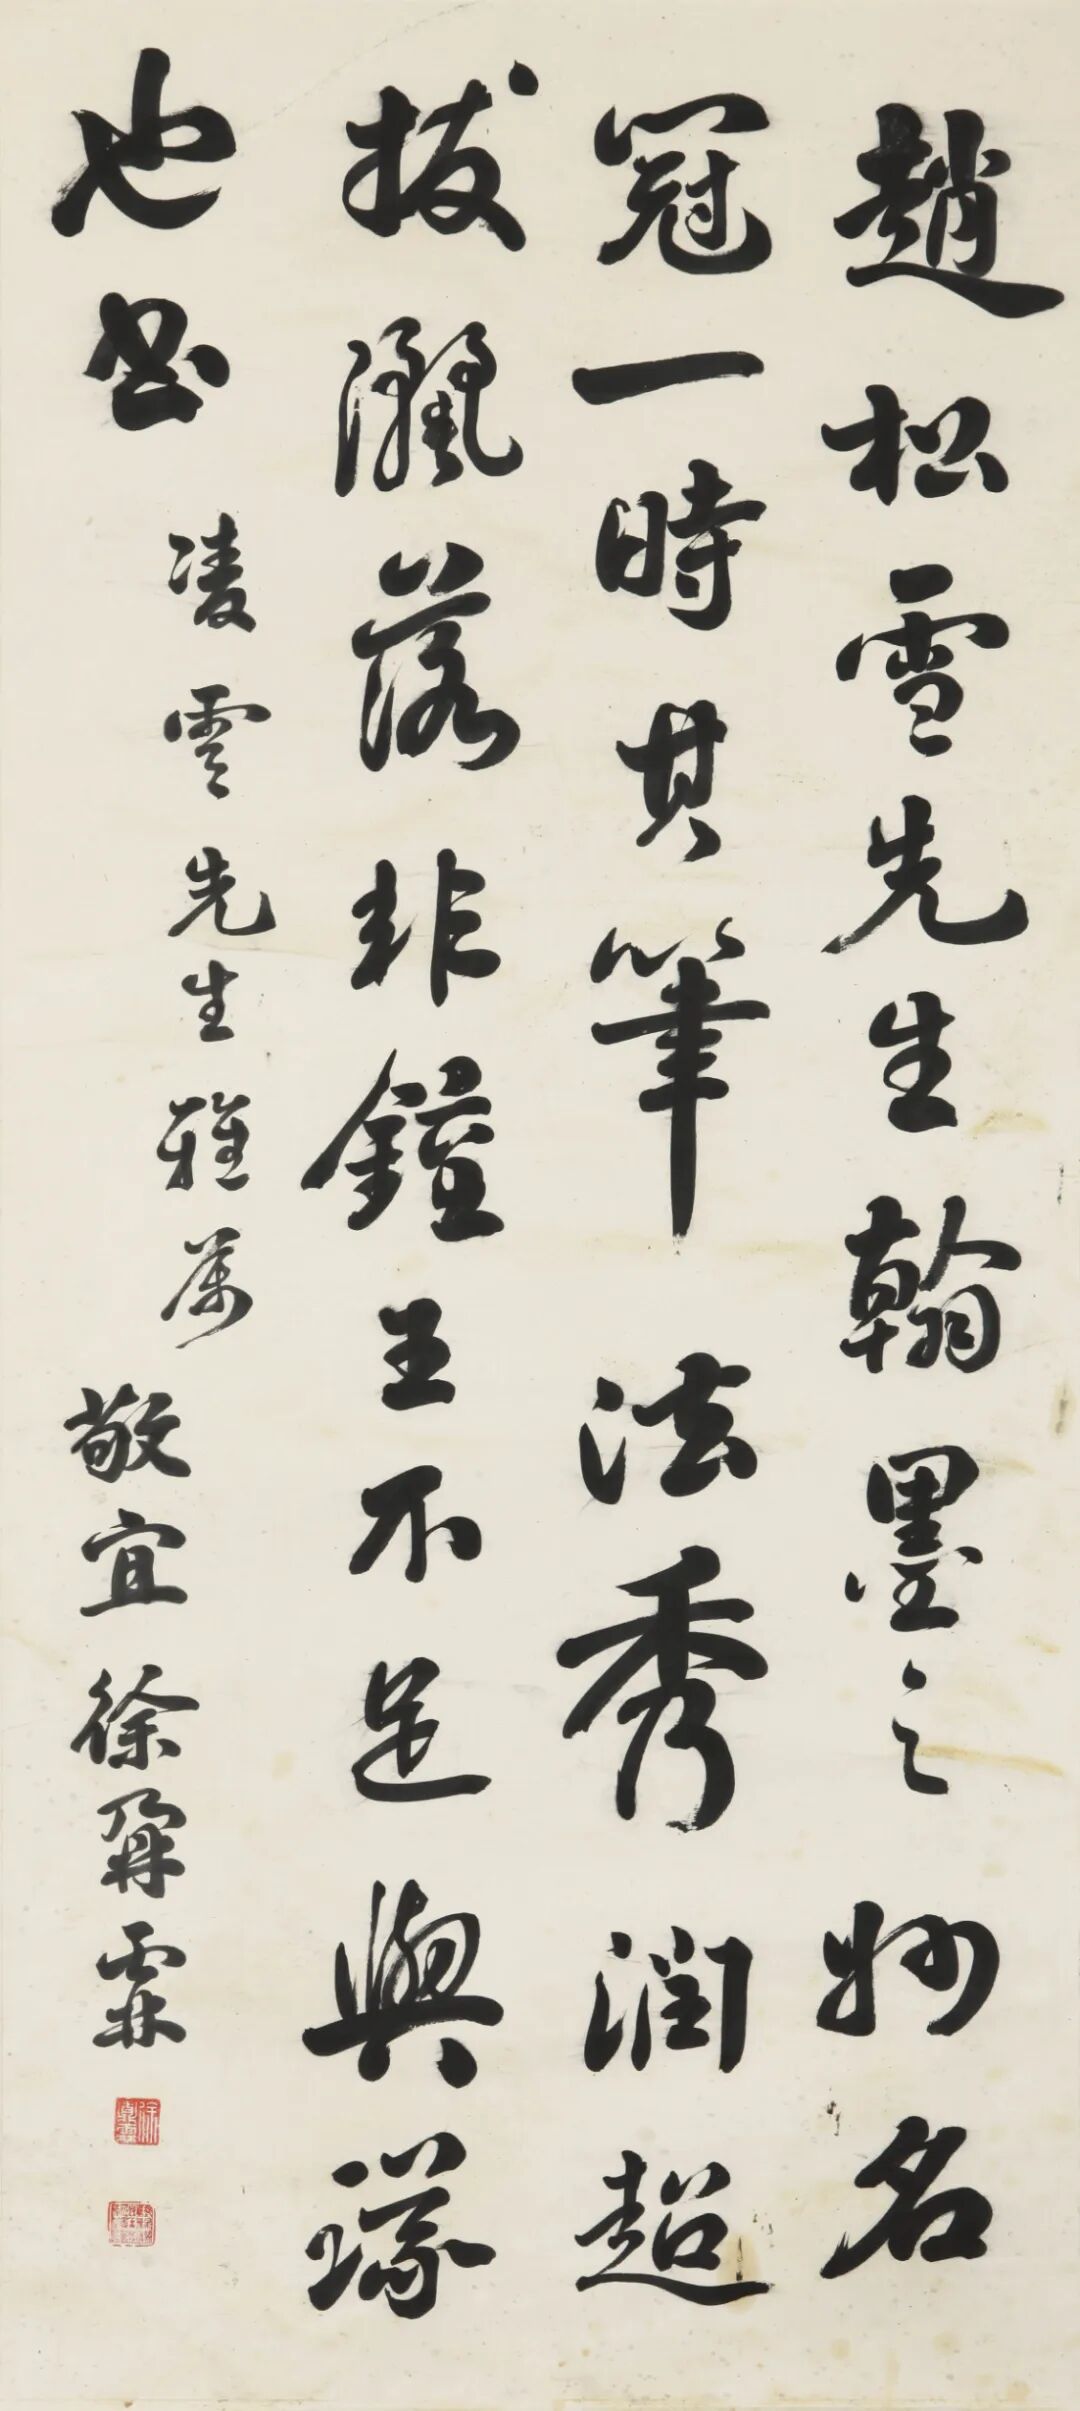 趙松雪先生翰墨之妙名
冠一時其筆法秀潤超
拔灑落非鐘王不足與
也
凌雲先生雅属
敬宜徐鼐霖
徐鼐霖